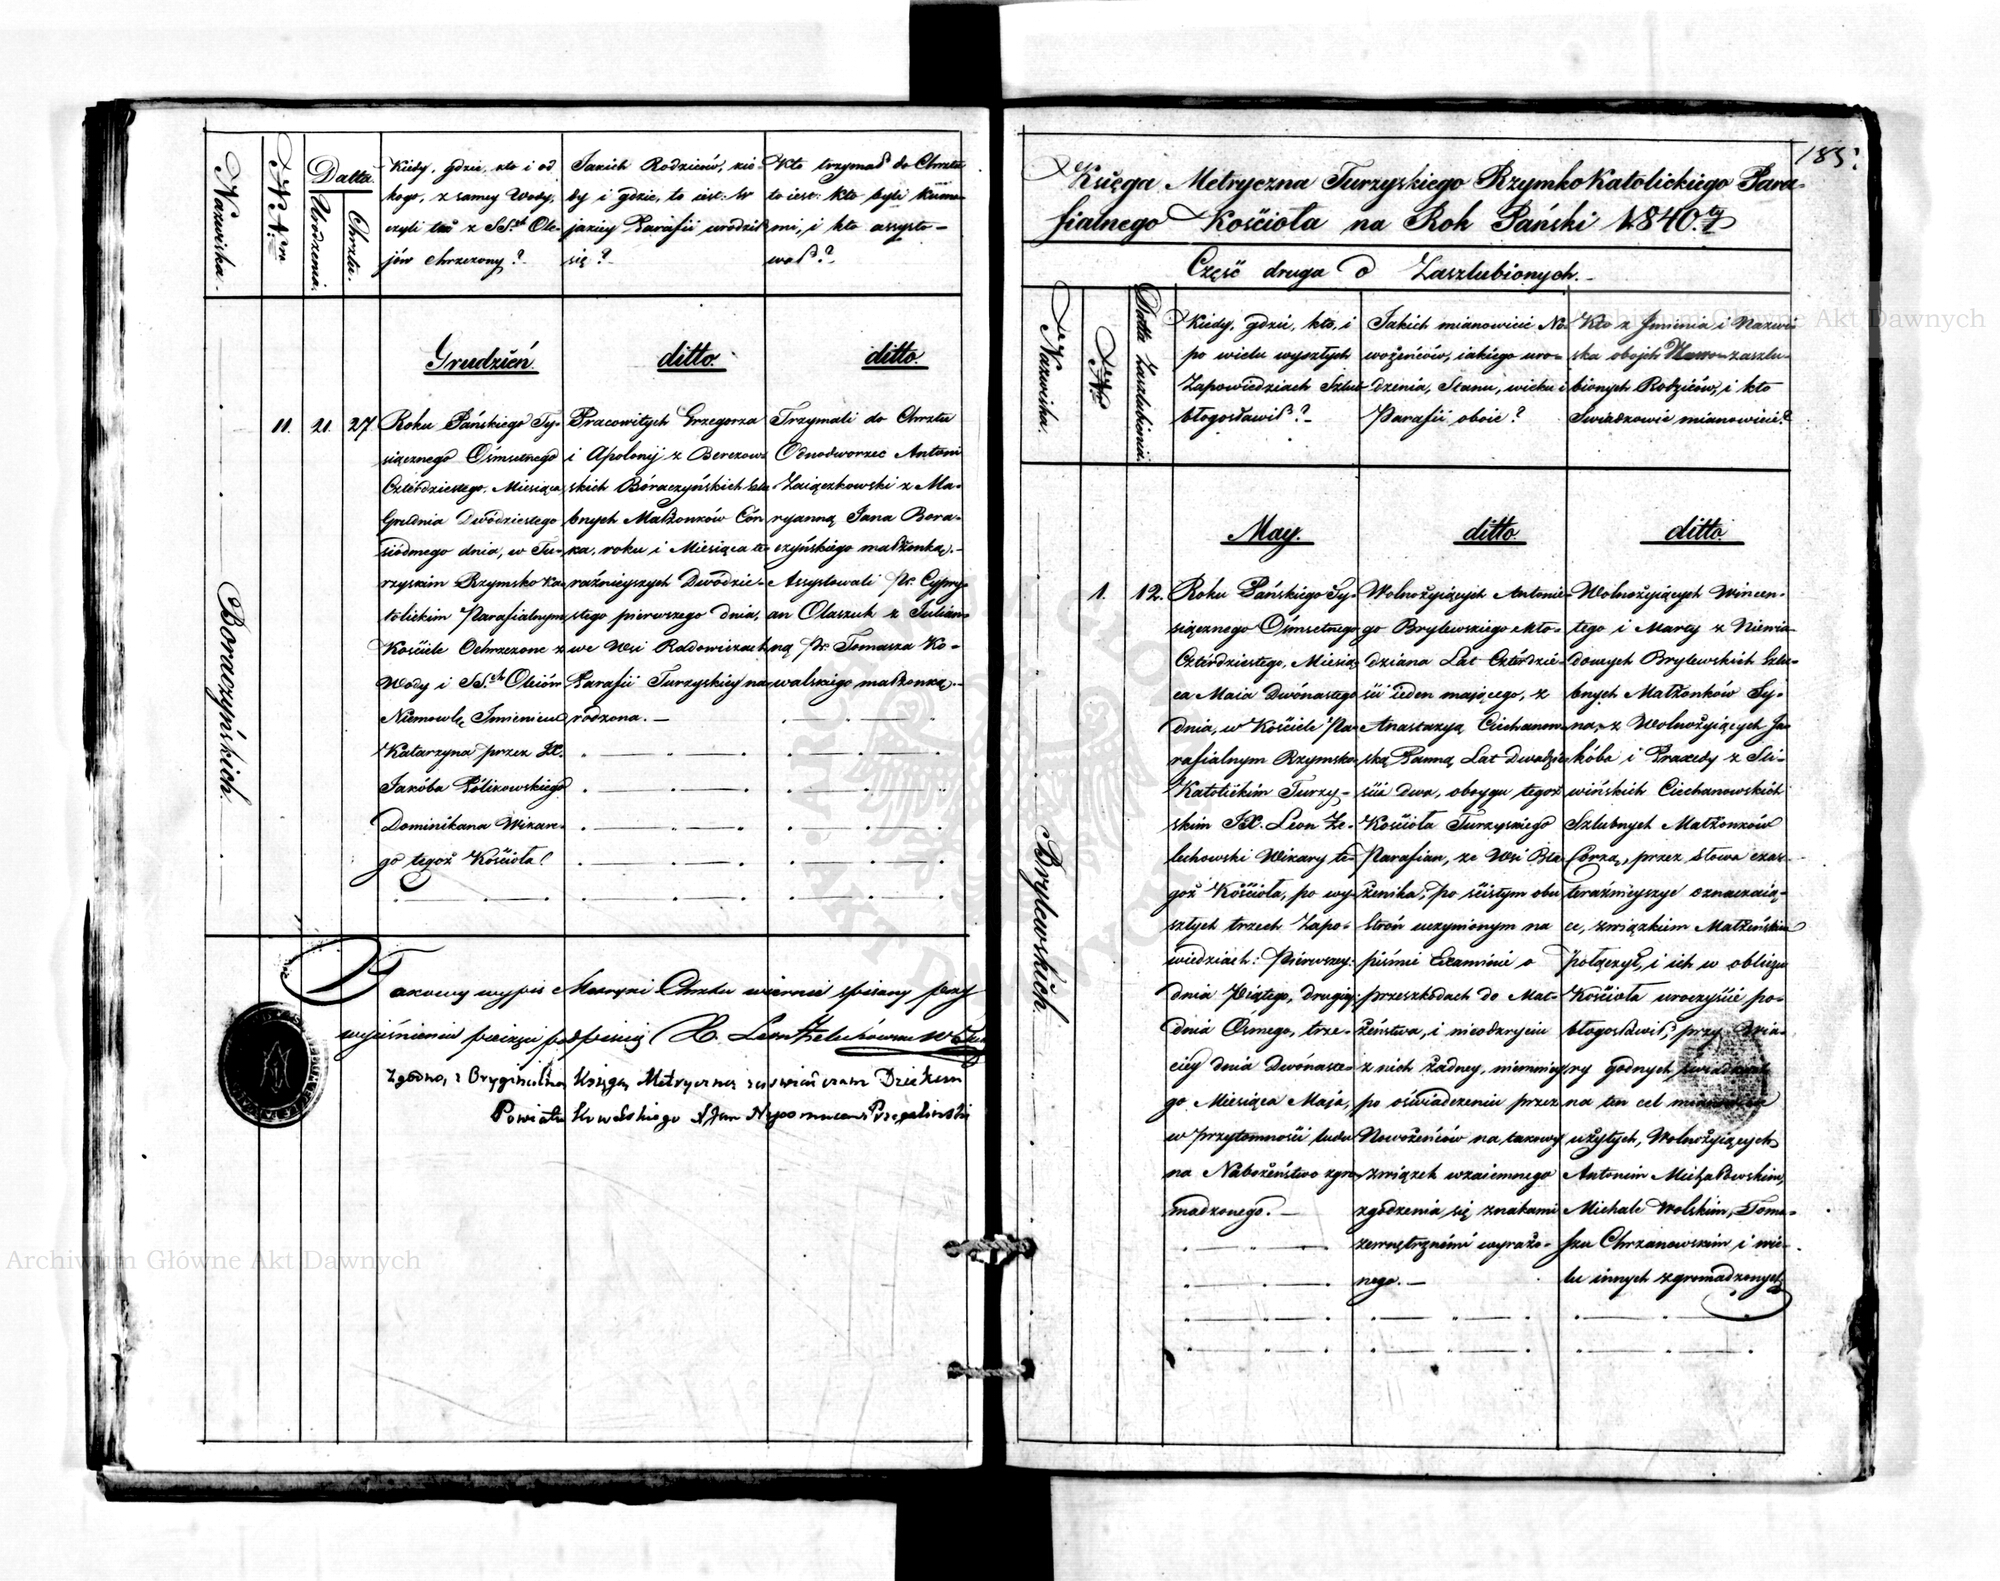 Nazwiska.
N. Nro
Datta.
Urodzenia.
Chrztu.
Kiedy, gdzie, kto i od
kogo, z samey Wody,
czyli też z SS.ch Ole-
jów chrzczony?
Jakich Rodziców, kie-
dy i gdzie, to iest: w
jakiey Parafii urodził
się?
Kto trzymał do Chrztu
to iest: kto byli Kumo-
mi, i kto assysto-
wał?
Grudzień.
ditto.
ditto.
Boraczyńskich.
11.
21.
27.
Roku Pańskiego Ty-
siącznego Ośmsetnego
Czterdziestego, Miesiąca
Grudnia Dwódziestego
siódmego dnia, w Tu-
rzyskim Rzymsko Ka-
tolickim Parafialnym
Kościele Ochrzczone z
Wody i SS.ch Oleiów
Niemowlę Imieniem
Katarzyna przez JX.
Jakóba Pólikowskiego
Dominikana Wikare-
go tegoż Kościoła
Pracowitych Grzegorza
i Apolonij z Berezow-
skich Boraczyńskich szlu
bnych Małżonków Cór
ka, roku i Miesiąca te-
raźnieyszych Dwódzie-
stego pierwszego dnia,
we Wsi Radowiczach
Parafii Turzyskiey na
rodzona.
Trzymali do Chrztu
Odnodworzec Antoni
Zaiączkowski z Ma-
ryanną Jana Bora-
czyńskiego małżonką.
Assystowali Pr. Cypry-
an Olaszuk z Julian-
ną Pr. Tomasza Ko-
walskiego małżonką.
Takowy wypis Metryki Chrztu wiernie spisany przy
wyciśnieniu pieczęci podpisuię X. Leon Żelechowski
Zgodno z Oryginalną Księgą Metryczną zaświadczam Dziekan
Powiatu Kowelskiego X Jan Nepomucen
185.
Księga Metryczna Turzyskiego Rzymsko Katolickiego Para-
fialnego Kościoła na Rok Pański 1840.ty
Część druga o Zaszlubionych.
Nazwiska.
N.
Datta Zaszlubienia.
Kiedy, gdzie, kto, i
po wielu wyszłych
Zapowiedziach Szlub
błogosławił?
Jakich mianowicie No-
wożeńców, iakiego uro-
dzenia, Stanu, wieku i
Parafii oboie?
Kto z Jmienia i Nazwi-
ska obojch Nowo-zaszlu-
bionych Rodziców, i kto
Swiadkowie mianowicie?
May.
ditto.
ditto
Brylewskich.
1.
12.
Roku Pańskiego Ty-
siącznego Ośmsetnego
Czterdziestego, Miesią-
ca Maia Dwónastego
dnia, w Kościele Pa-
rafialnym Rzymsko-
Katolickim Turzy-
skim JX. Leon Że-
lechowski Wikary te-
goż Kościoła, po wy-
szłych trzech Zapo-
wiedziach: Pierwszey:
dnia Piątego, drugiey:
dnia Ósmego, trze-
ciey dnia Dwónaste-
go Miesiąca Maja,
w przytomności ludu
na Nabożeństwo zgro-
madzonego.
Wolnożyiących Antonie-
go Brylewskiego Mło-
dziana Lat Czterdzie-
ści ieden maiącego, z
Anastazyą Ciechanow-
ską Panną Lat Dwadzie
ścia dwa, oboygu tegoż
Kościoła Turzyskiego
Parafian, ze Wsi Bła-
żenika; po ścisłym obu
Stron uczynionym na
piśmie Examinie o
przeszkodach do Mał-
żeństwa, i nieodkryciu
z nich żadney, niemniey
po oświadczeniu przez
Nowożeńców na takowy
związek wzaiemnego
zgodzenia się znakami
zewnętrznémi wyrażo-
nego.
Wolnożyiących Wincen-
tego i Marty z Niewia-
domych Brylewskich Szlu-
bnych Małżonków Sy-
na, z Wolnożyiących Ja-
kóba i Praxedy z Śli-
wińskich Ciechanowskich
Szlubnych Małżonków
Córką, przez słowa czas
teraźnieyszy oznaczaią-
ce, związkiem Małżeńskim
połączył, i ich w obliczu
Kościoła uroczyście po-
błogosławił, przy Wia-
ry godnych świadkach
na ten cel
użytych, Wolnożyiących
Antonim Michałowskim,
Michale Wolskim, Toma-
szu Chrzanowskim i wie-
lu innych zgromadzonych
Archiwum Główne Akt Dawnych
Archiwum Główne Akt Dawnych